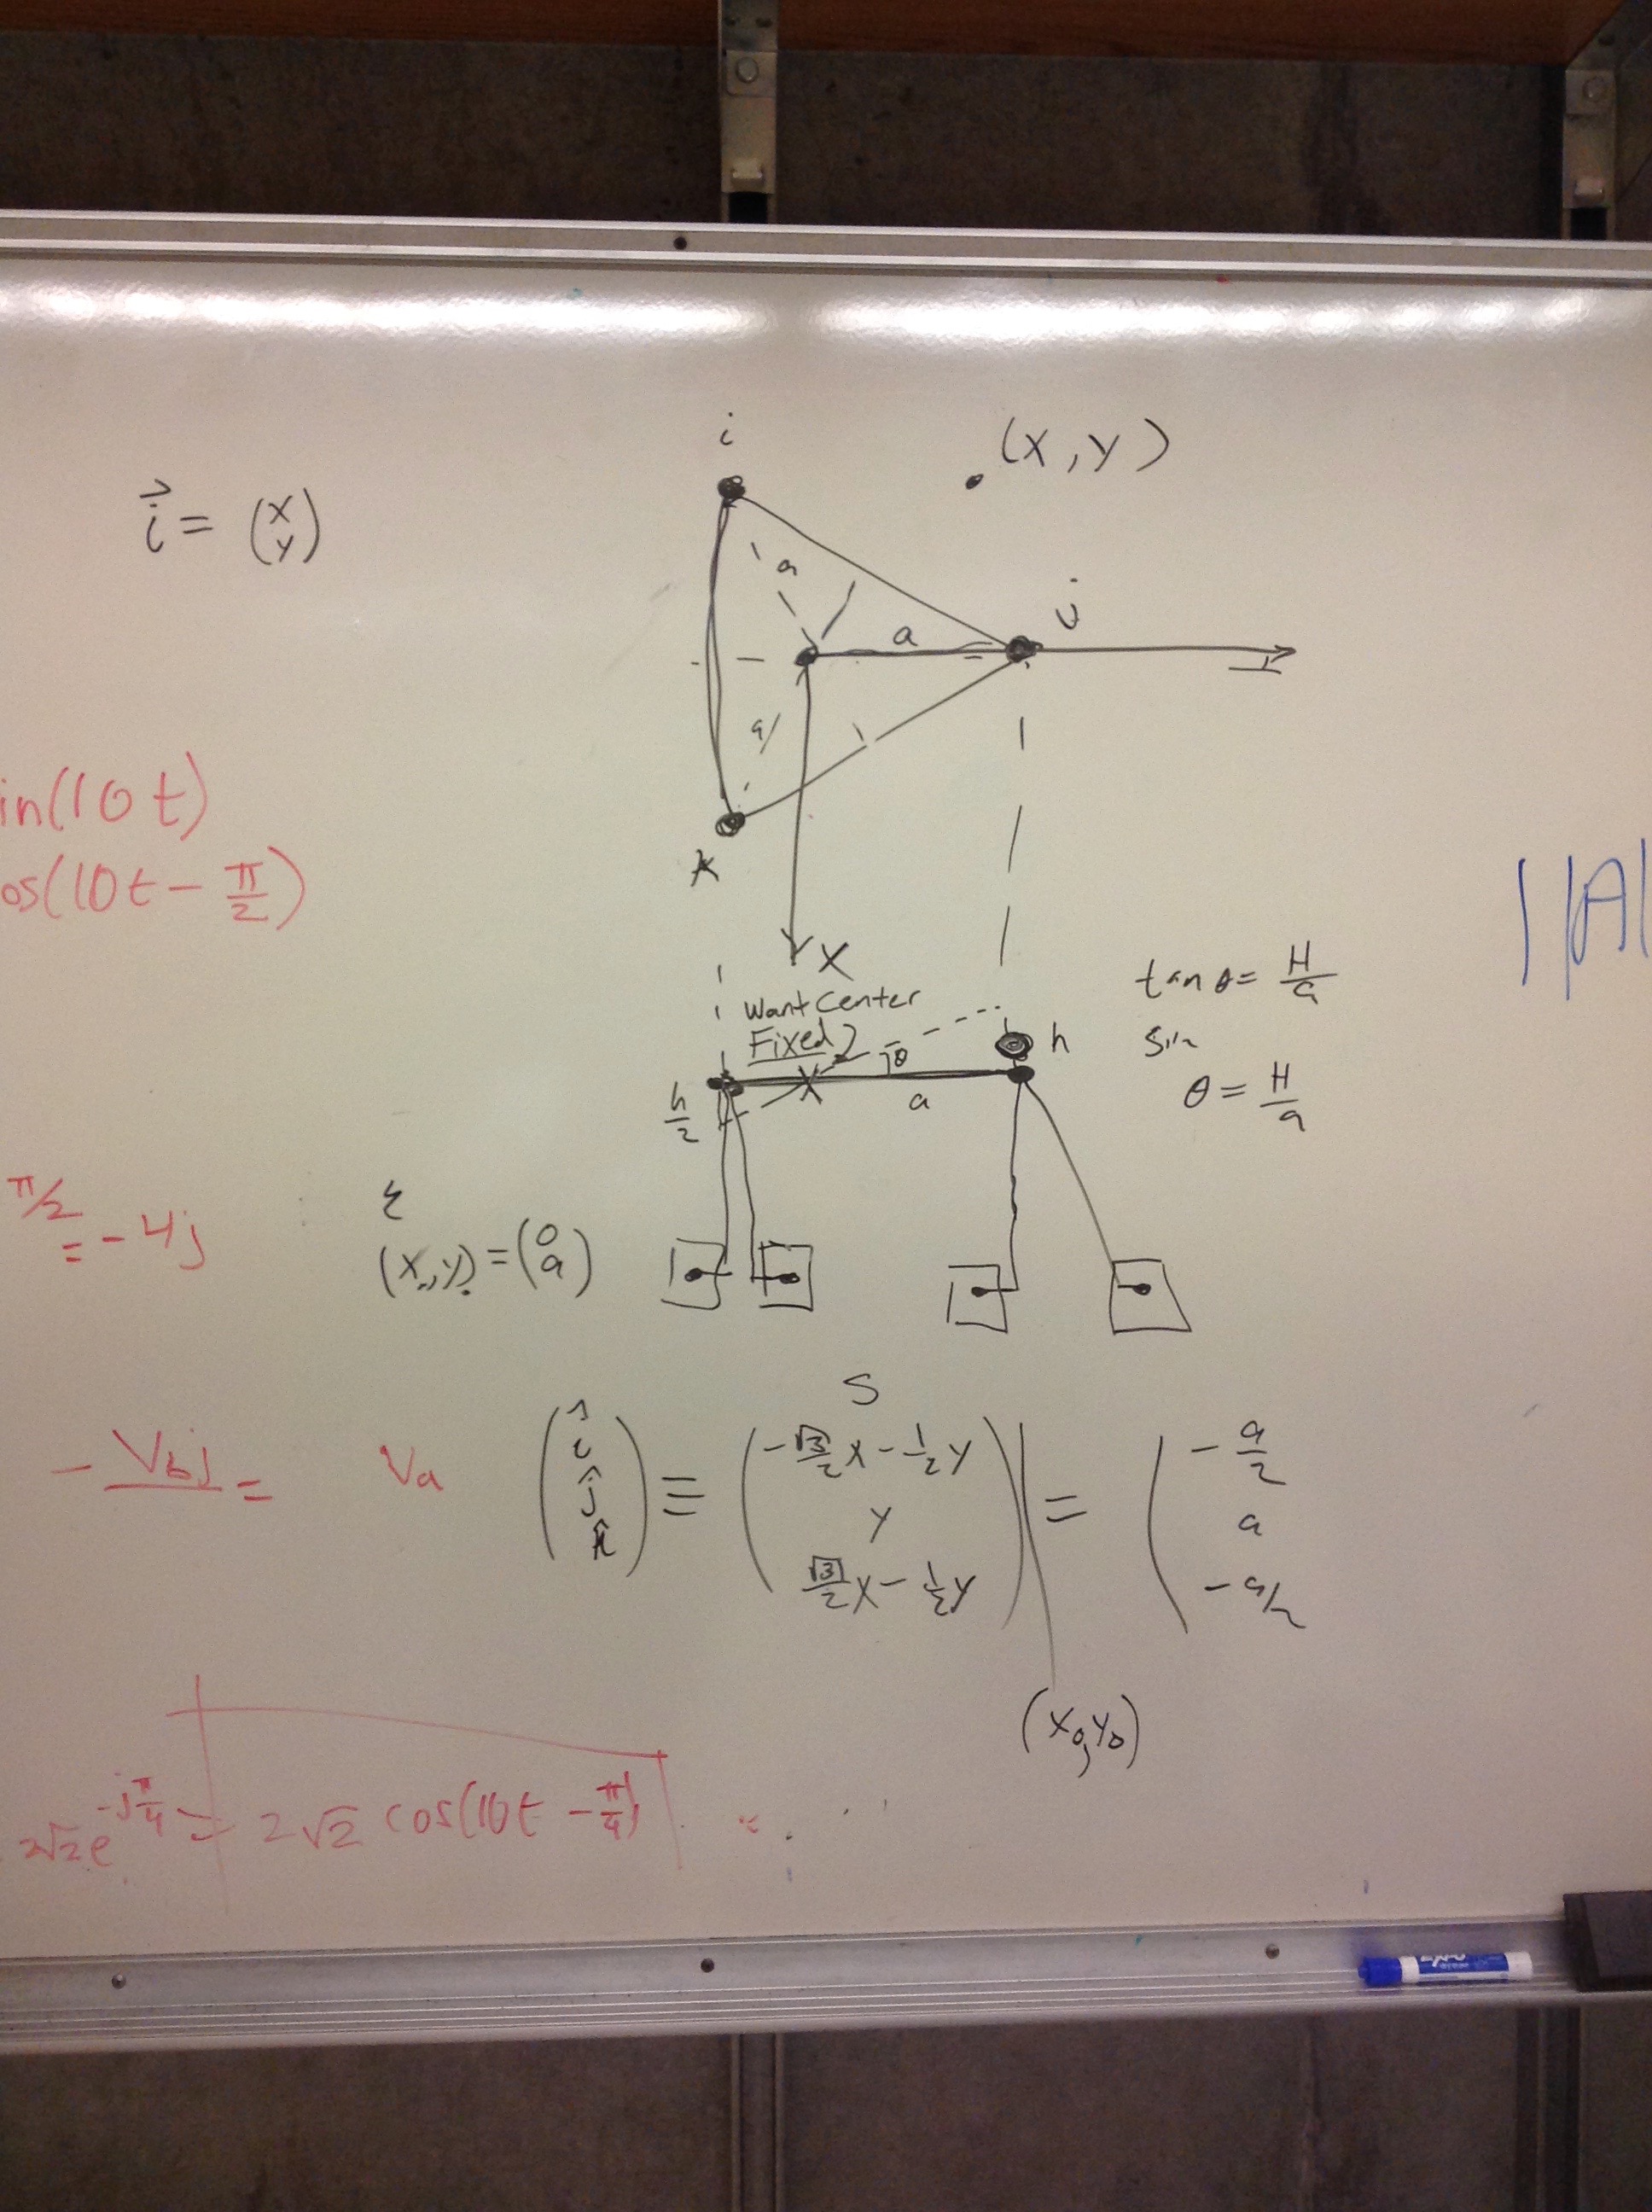 i
(x, y)
i⃗ = (x y)
a
a
j
a/
y
in(10t)
os(10t - π/2)
k
x
||A|
want center
Fixed
θ
h
a
h/2
tan θ = H/a
sin
θ = H/a
π/2
= -4j
(x₀, y₀) = (0 a)
S
- Vbj =
Va
(î ĵ k̂) ≡ (-√3/2 x - 1/2 y
y
√3/2 x - 1/2 y) | = (-a/2
a
-a/2
(x₀, y₀)
2√2 e^-jπ/4 = 2√2 cos(10t - π/4)
EXPO